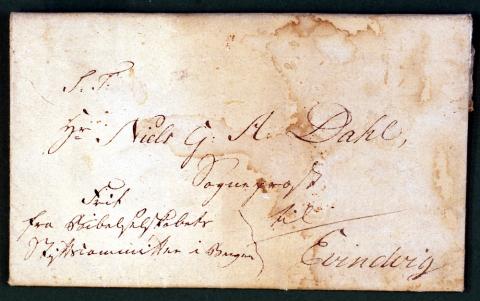 S. T.
Hr Niels G. A. Dahl,
Sogneprost
til
Evindvig
Frit
fra Bibelselskabets
Styrcommittee i Bergen